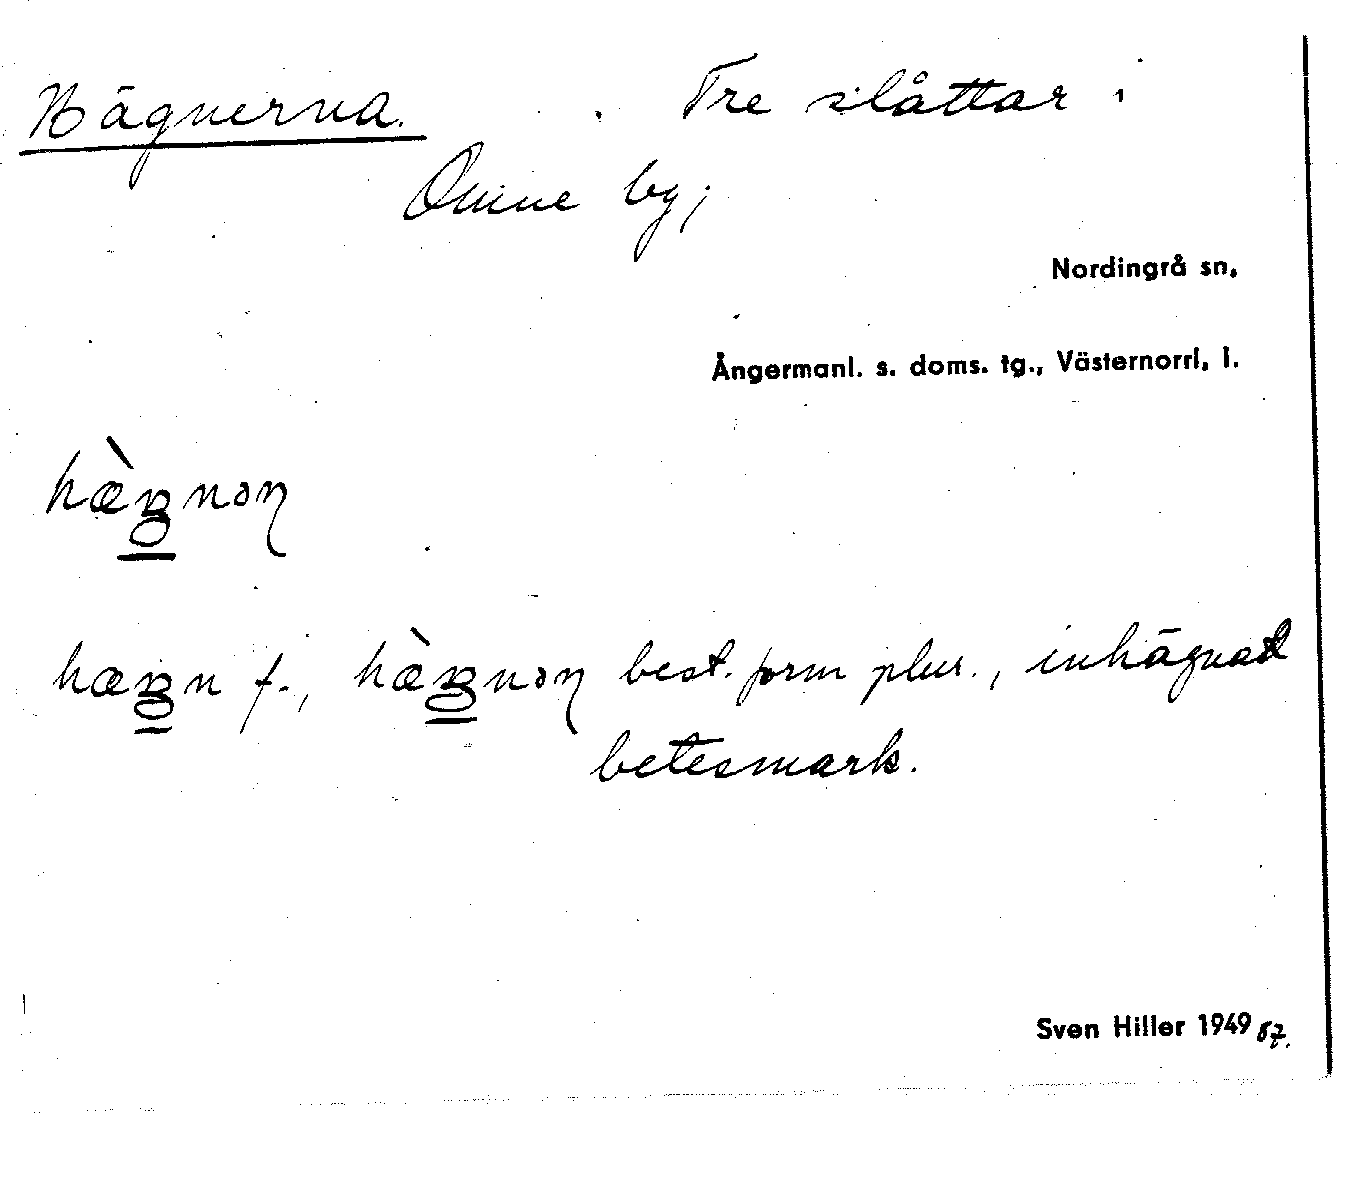 Hägnerna. Tre slåttar i
Omne by;
Nordingrå sn.
Ångermanl. s. doms. tg., Västernorrl. l.
f., best. form plur., inhägnad
betesmark.
Sven Hiller 1949